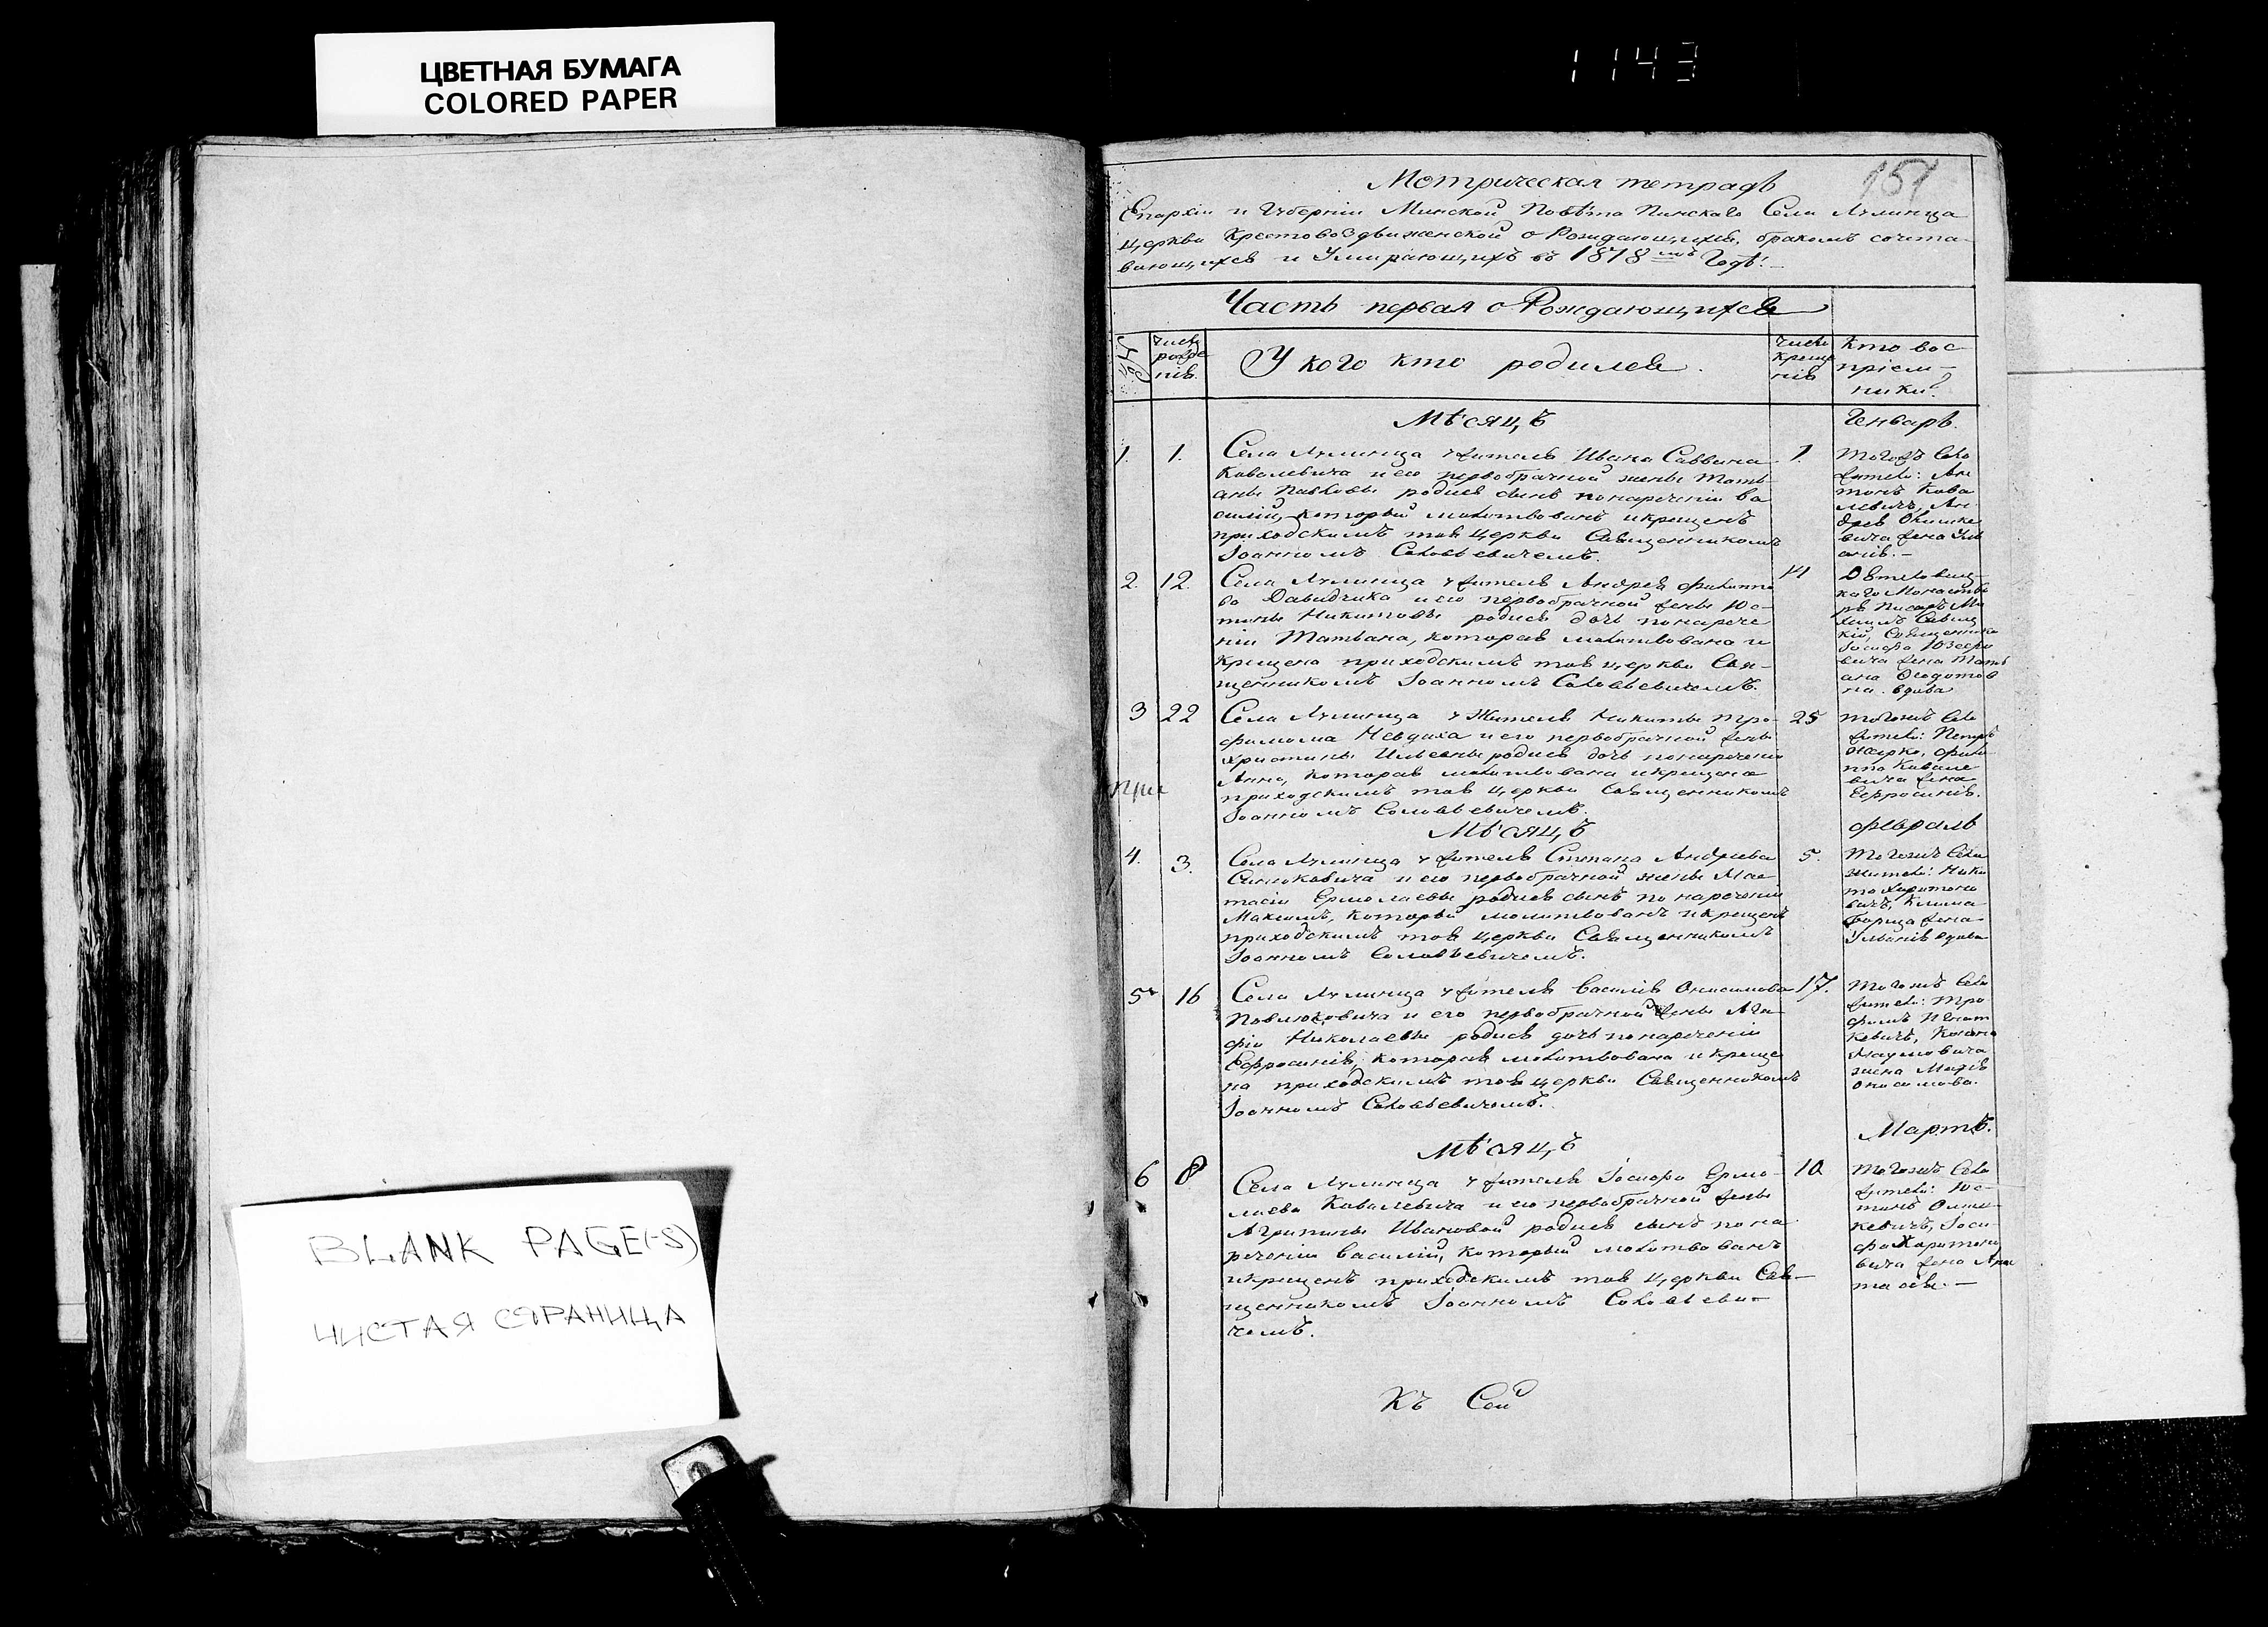 ЦВЕТНАЯ БУМАГА
COLORED PAPER
1143
BLANK PAGE(-S)
ЧИСТАЯ СТРАНИЦА
151
Мотрическая тетрадь
Епархіи и Губерніи Минской Повѣта Пинскаго Села Лулинца
церкви Крестовоздвиженской о Рождающихся, бракомъ сочета-
вающихся и Умирающихъ въ 1818мъ Годѣ.
Часть первая о Рождающихся
Число рожденія.
У кого кто родился.
Число крещенія
Кто вос-
пріем-
ники?
Мѣсяцъ Генварь.
1. 1. Села Лулинца жителя Ивана Саввина
Ковалевича и его первобрачной жены Тать-
аны Павловы родися сынъ по нареченіи Ва
силій, который молитвованъ и крещенъ
приходскимъ тоя церкви Священникомъ
Іоанномъ Соловьевичемъ.
1. Тогожъ Села
жители: Ан
тонъ Кова
левичъ, Ан
дрея
вича жена Ули
анія.
2. 12. Села Лулинца жителя Андрея Филиппо
ва Давидчика и его первобрачной жены Юс-
тины Никитовы родися дочь по нарече
ніи Татьана, которая молитвована и
крещена приходскимъ тоя церкви Свя-
щенникомъ Іоанномъ Соловьевичемъ.
14
каго Монасты
ря Писарь Ми
хаилъ
кій, Священника
Іосифа Юзефо
вича жена Тать
ана
на вдова
3 22 Села Лулинца жителя Никиты Тро-
фимова Невдаха и его первобрачной жены
Христины Ильевны родися дочь по нареченіи
Анна, которая молитвована и крещена
приходскимъ тоя церкви Священникомъ
Іоанномъ Соловьевичемъ.
При
25 Тогожъ Села
жители: Петръ
Жирко, Фили
ппа Ковале
вича жена
Ефросинія.
Мѣсяцъ Февраль
4. 3. Села Лулинца жителя Степана Андреева
Синюковича и его первобрачной жены Нас
тасіи Ермолаевы родися сынъ по нареченіи
Максимъ, который молитвованъ и крещенъ
приходскимъ тоя церкви Священникомъ
Іоанномъ Соловьевичемъ.
5. Тогожъ Села
жители: Ники
та Харитоно
вичъ, Клима
Борица жена
Ульянія вдова
5 16 Села Лулинца жителя Василія Онисимова
Павлюковича и его первобрачной жены Ага-
фіи Николаевы родися дочь по нареченіи
Ефросинія, которая молитвована и креще
на приходскимъ тоя церкви Священникомъ
Іоанномъ Соловьевичемъ.
17. Тогожъ Села
жители: Тро
фимъ Игнат
кевичъ, Конона
Наумовича
жена Марія
Онисимова.
Мѣсяцъ Мартъ.
6 8 Села Лулинца жителя Іосифа Ермо-
лаева Ковалевича и его первобрачной жены
Агрипины Ивановой родися сынъ по на
реченіи Василій, который молитвованъ
и крещенъ приходскимъ тоя церкви Свя-
щенникомъ Іоанномъ Соловьеви-
чемъ.
10. Тогожъ Села
жители: Юс-
тинъ
кевичъ, Іоси
фа Харитоно
вича жена
Къ Сей